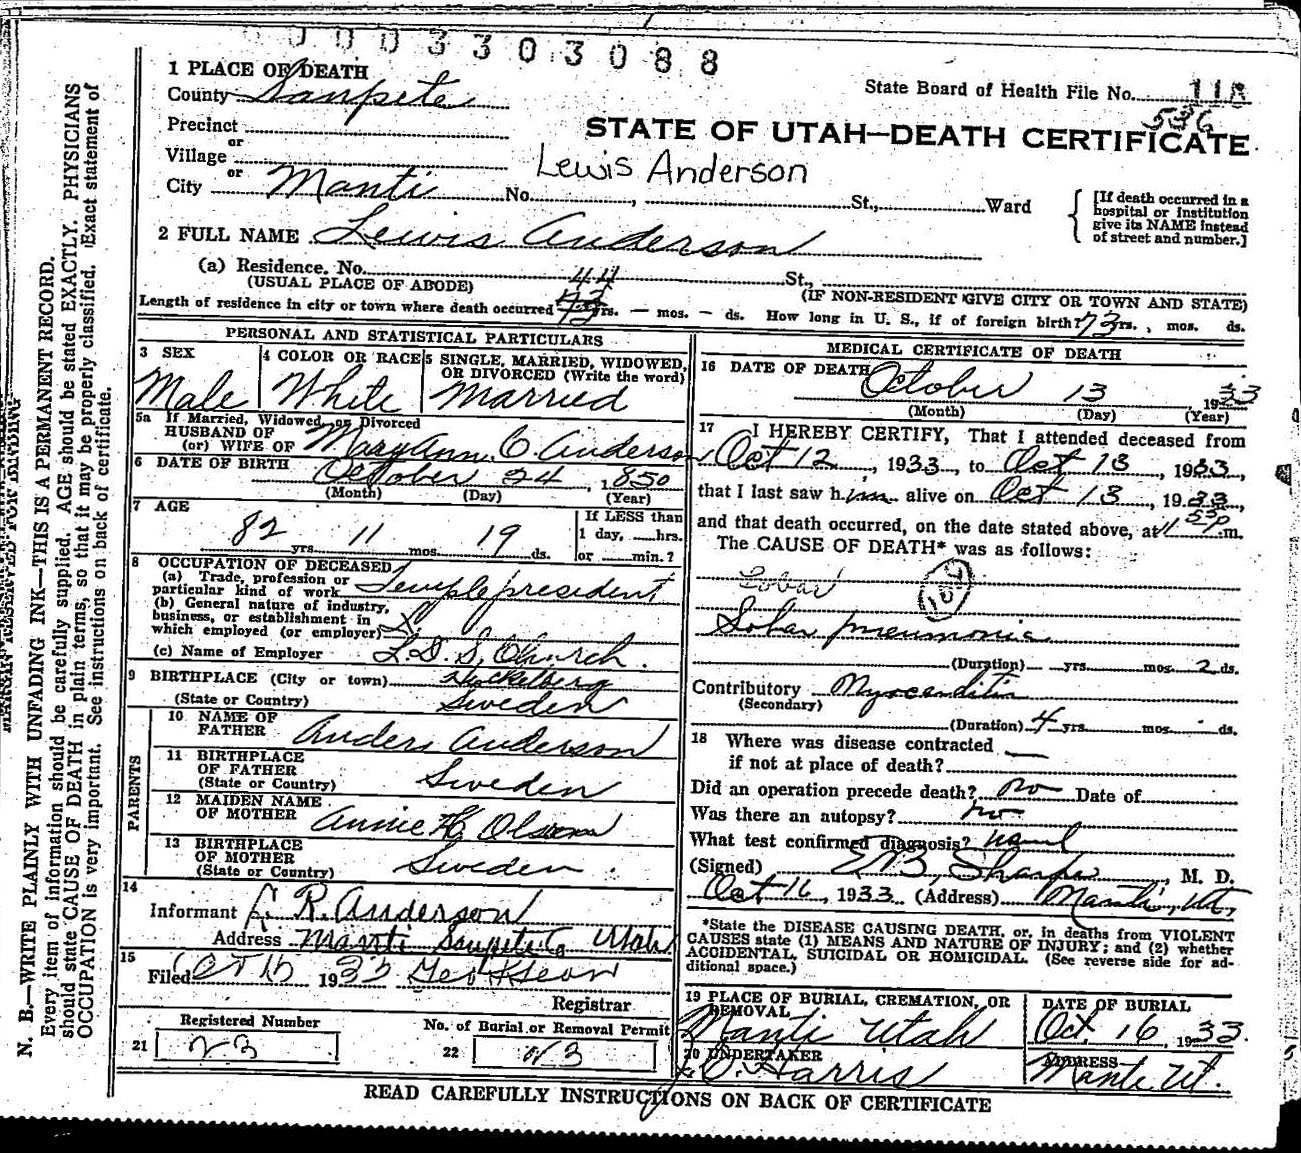 0003303088
1 PLACE OF DEATH
County Sanpete
State Board of Health File No. 118
536
Precinct
or
STATE OF UTAH—DEATH CERTIFICATE
Village
or
Lewis Anderson
City Manti No. , St., Ward
[If death occurred in a hospital or institution give its NAME instead of street and number.]
2 FULL NAME Lewis Anderson
(a) Residence. No. St.,
(USUAL PLACE OF ABODE) (IF NON-RESIDENT GIVE CITY OR TOWN AND STATE)
44
Length of residence in city or town where death occurred 73 yrs. — mos. — ds. How long in U. S., if of foreign birth? 73 yrs. , mos. ds.
PERSONAL AND STATISTICAL PARTICULARS
3 SEX
Male
4 COLOR OR RACE
White
5 SINGLE, MARRIED, WIDOWED,
OR DIVORCED (Write the word)
Married
5a If Married, Widowed, or Divorced
HUSBAND OF
(or) WIFE OF Mary Ann C. Anderson
6 DATE OF BIRTH October 24, 1850
(Month) (Day) (Year)
7 AGE
82 yrs. 11 mos. 19 ds.
If LESS than
1 day, hrs.
or min.?
8 OCCUPATION OF DECEASED
(a) Trade, profession or
particular kind of work Temple president
(b) General nature of industry,
business, or establishment in
which employed (or employer)
(c) Name of Employer L. D. S. Church.
9 BIRTHPLACE (City or town)
(State or Country) Sweden
PARENTS
10 NAME OF
FATHER Anders Anderson
11 BIRTHPLACE
OF FATHER
(State or Country) Sweden
12 MAIDEN NAME
OF MOTHER Annie H. Olson
13 BIRTHPLACE
OF MOTHER
(State or Country) Sweden.
14
Informant R. Anderson
Address Manti Sanpete Co Utah
15
Filed Oct 16 1933
Registrar
Registered Number
21 23
No. of Burial or Removal Permit
22 23
MEDICAL CERTIFICATE OF DEATH
16 DATE OF DEATH October 13 1933
(Month) (Day) (Year)
17 I HEREBY CERTIFY, That I attended deceased from
Oct 12, 1933, to Oct 13, 1933,
that I last saw him alive on Oct 13, 1933,
and that death occurred, on the date stated above, at 11 55 p.m.
The CAUSE OF DEATH* was as follows:
Lobar
108
Lobar pneumonia
(Duration) — yrs. mos. 2 ds.
Contributory Myocarditis
(Secondary)
(Duration) 4 yrs. mos. ds.
18 Where was disease contracted
if not at place of death?
Did an operation precede death? no Date of
Was there an autopsy? no
What test confirmed diagnosis? usual
(Signed) , M. D.
Oct 16, 1933 (Address) Manti, Ut,
*State the DISEASE CAUSING DEATH, or, in deaths from VIOLENT
CAUSES state (1) MEANS AND NATURE OF INJURY; and (2) whether
ACCIDENTAL, SUICIDAL OR HOMICIDAL. (See reverse side for ad-
ditional space.)
19 PLACE OF BURIAL, CREMATION, OR
REMOVAL
Manti Utah
DATE OF BURIAL
Oct. 16, 1933.
20 UNDERTAKER
Harris
ADDRESS
Manti Ut.
READ CAREFULLY INSTRUCTIONS ON BACK OF CERTIFICATE
N. B.—WRITE PLAINLY WITH UNFADING INK—THIS IS A PERMANENT RECORD.
Every item of information should be carefully supplied. AGE should be stated EXACTLY. PHYSICIANS
should state CAUSE OF DEATH in plain terms, so that it may be properly classified. Exact statement of
OCCUPATION is very important. See instructions on back of certificate.